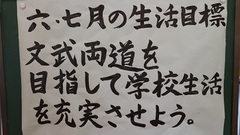 六、七月の生活目標
文武両道を
目指して学校生活
を充実させよう。